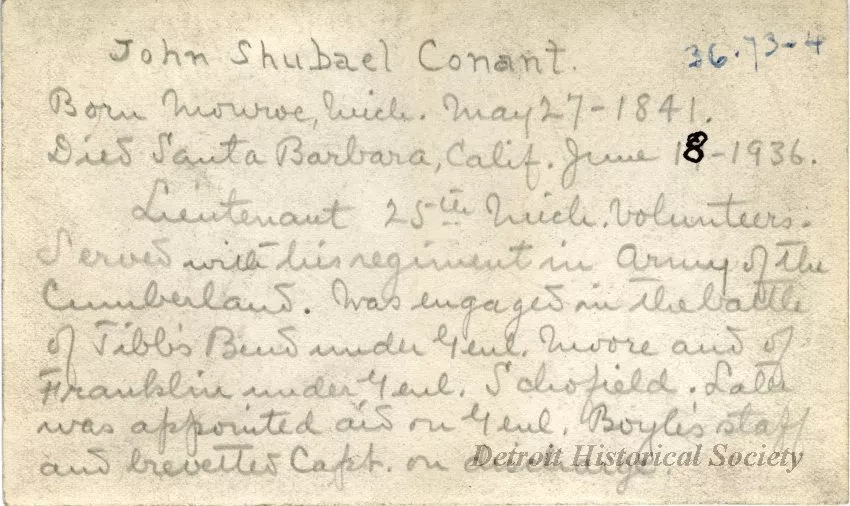 John Shubael Conant.
36.73-4
Born Monroe, Mich. May 27-1841.
Died Santa Barbara, Calif. June 18-1936.
Lieutenant 25th Mich. Volunteers.
Served with his regiment in Army of the
Cumberland. Was engaged in the battle
of Tibb's Bend under Genl. Moore and of
Franklin under Genl. Schofield. Later
was appointed aid on Genl. Boyle's staff
and brevetted Capt. on discharge.
Detroit Historical Society